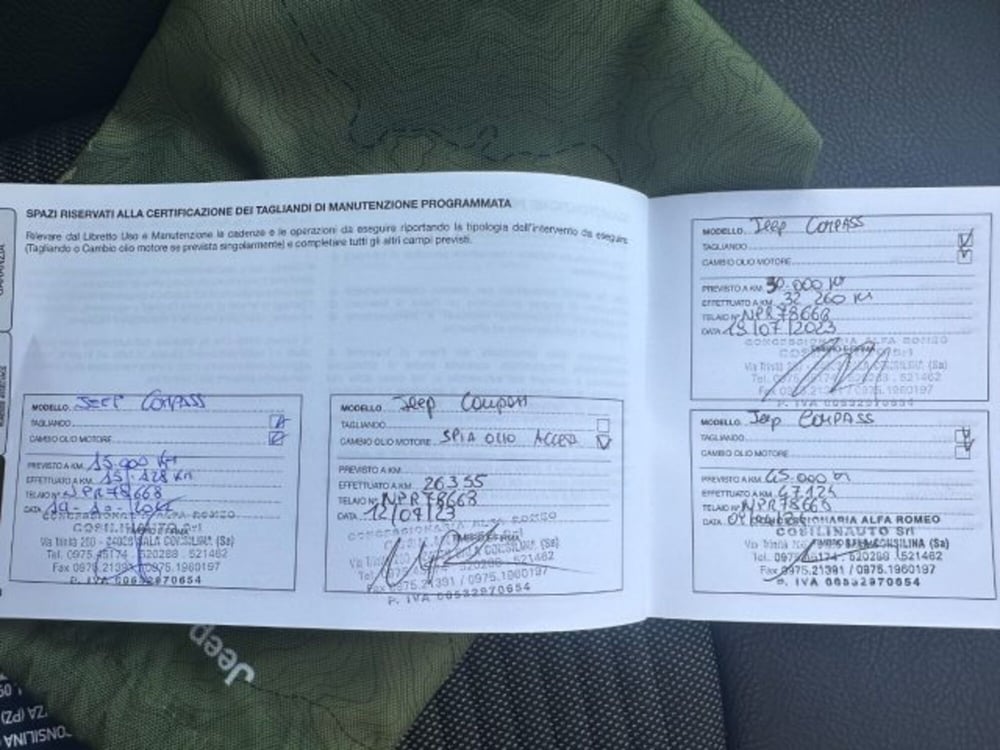 SPAZI RISERVATI ALLA CERTIFICAZIONE DEI TAGLIANDI DI MANUTENZIONE PROGRAMMATA
Rilevare dal Libretto Uso e Manutenzione la cadenze e le operazioni da eseguire riportando la tipologia dell'intervento da eseguire
(Tagliando o Cambio olio motore se prevista singolarmente) e completare tutti gli altri campi previsti.
GARANZIA
MODELLO JEEP COMPASS
TAGLIANDO
CAMBIO OLIO MOTORE
PREVISTO A KM. 15.000 Km
EFFETTUATO A KM. 15.128 Km
TELAIO N° NPR78668
DATA
CONCESSIONARIA ALFA ROMEO
COSILINAUTO Srl
TIMBRO E FIRMA
SALA CONSILINA (Sa)
Tel. 0975.45174 520288 . 521462
Fax 0975.21391 /0975.1960197
P. IVA
MODELLO Jeep Compass
TAGLIANDO
CAMBIO OLIO MOTORE SPIA OLIO ACCESA
PREVISTO A KM.
EFFETTUATO A KM. 26355
TELAIO N° NPR78668
DATA
CONCESSIONARIA ALFA ROMEO
TIMBRO E FIRMA
SALA CONSILINA (Sa)
521462
/0975.1960197
P. IVA
MODELLO Jeep COMPASS
TAGLIANDO
CAMBIO OLIO MOTORE
PREVISTO A KM. 30.000 Km
EFFETTUATO A KM. 32 260 Km
TELAIO N° NPR78668
DATA
CONCESSIONARIA ALFA ROMEO
TIMBRO E FIRMA
521462
/0975.1960197
P. IVA
MODELLO Jeep COMPASS
TAGLIANDO
CAMBIO OLIO MOTORE
PREVISTO A KM. 45.000
EFFETTUATO A KM. 47124
TELAIO N° NPR78668
DATA
ALFA ROMEO
COSILINAUTO Srl
TIMBRO E FIRMA
CONSILINA (Sa)
520288 . 521462
Fax 0975.21391 / 0975.1960197
P. IVA
Jeep
ZA (PZ)
ONSILINA